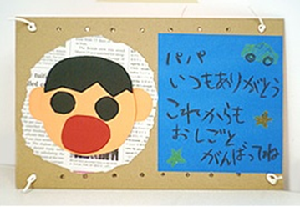 パパ
いつもありがとう
これからも
おしごと
がんばってね